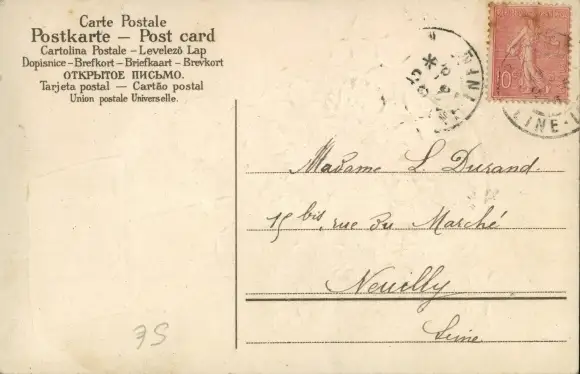 Carte Postale
Postkarte – Post card
Cartolina Postale – Levelező Lap
Dopisnice – Brefkort – Briefkaart – Brevkort
ОТКРЫТОЕ ПИСЬМО.
Tarjeta postal – Cartão postal
Union postale Universelle.
10
Madame L. Durand.
15 bis, rue du Marché
Neuilly
Seine
75